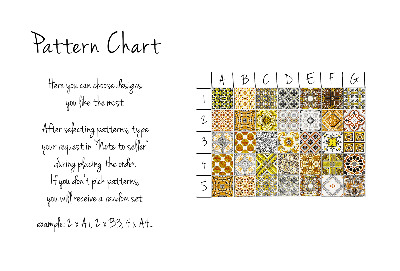 Pattern Chart
Here you can choose designs
you like the most.
After selecting patterns, type
your request in "Note to seller"
during placing the order.
If you don't pick patterns,
you will receive a random set.
example: 2 x A1, 2 x B3, 4 x A4...
A B C D E F G
1
2
3
4
5